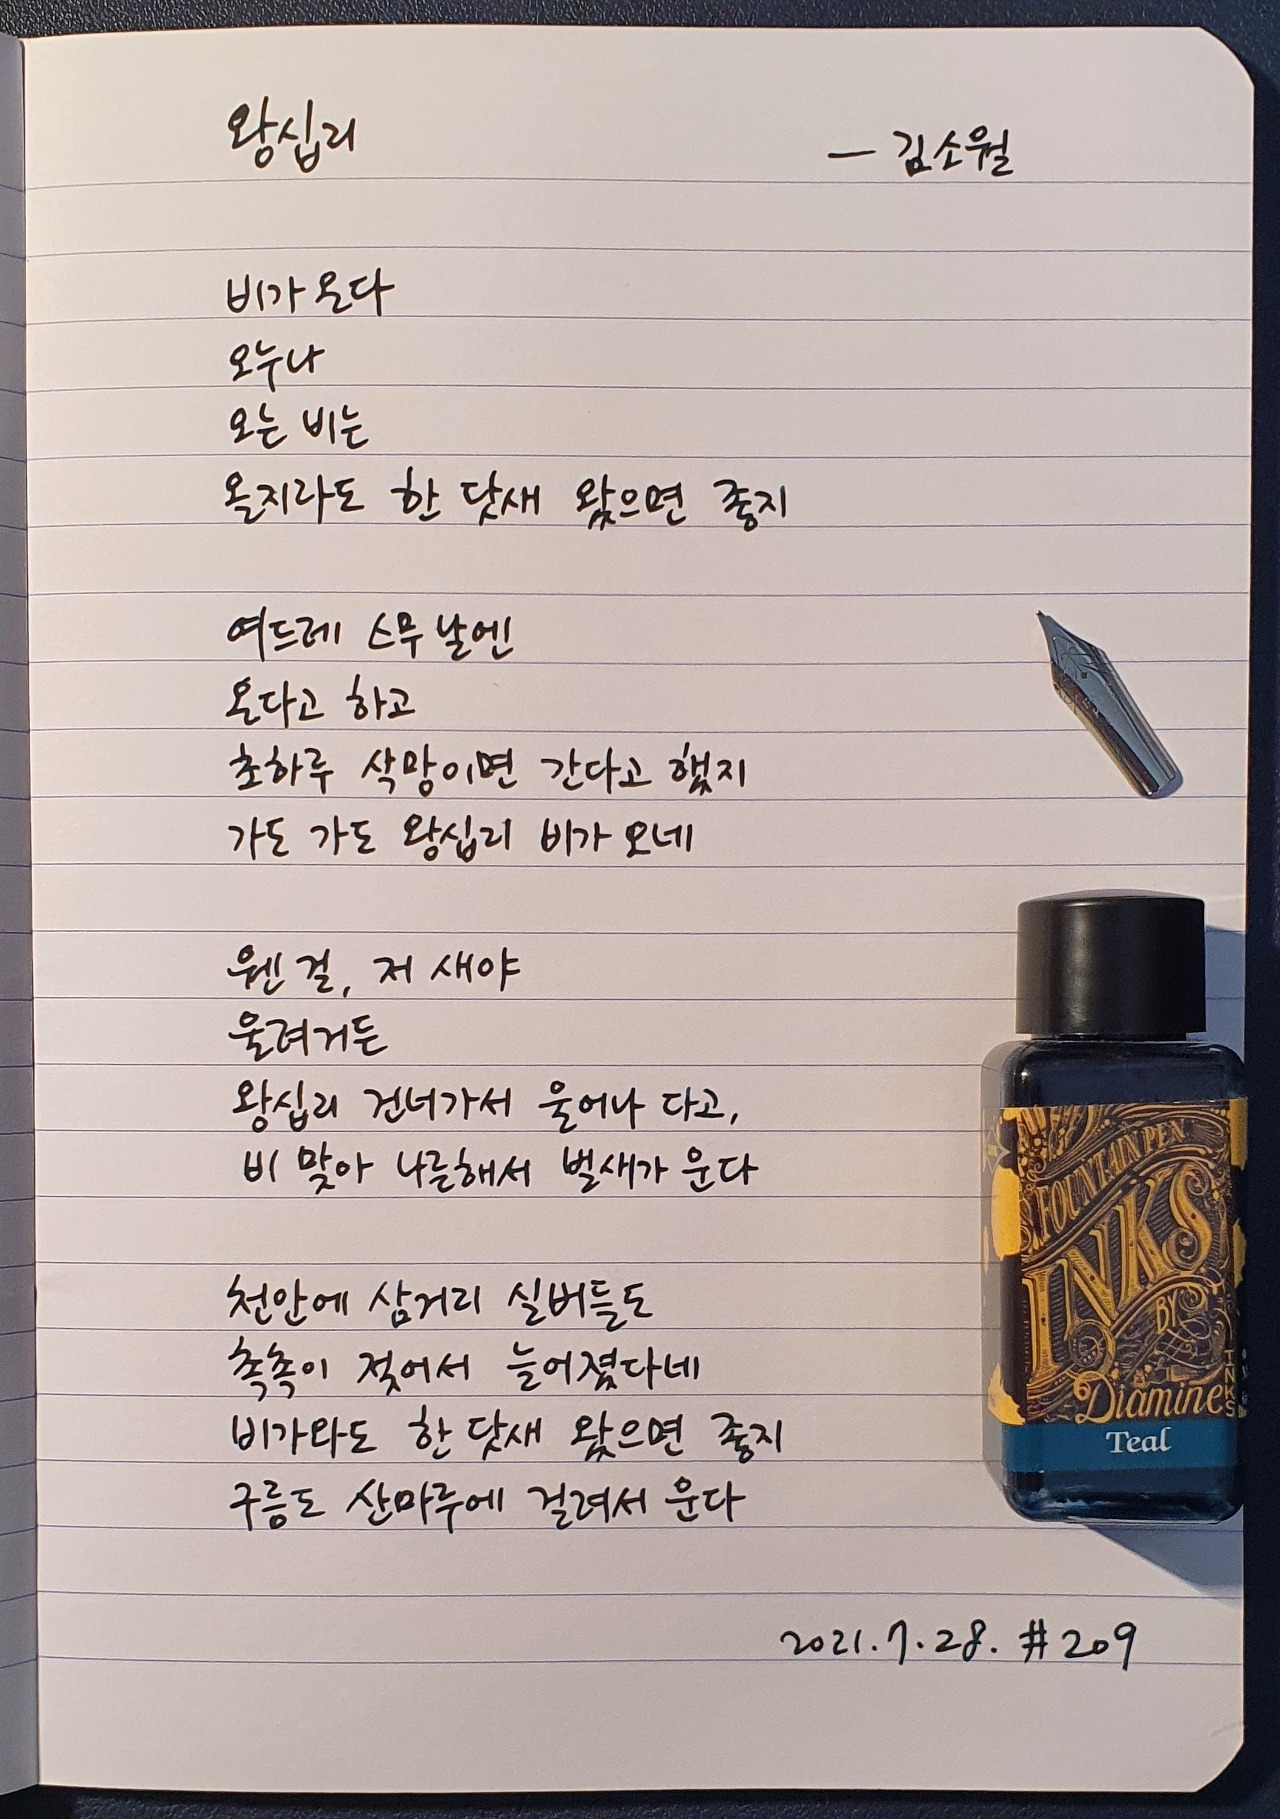 왕십리
— 김소월
비가 온다
오누나
오는 비는
올지라도 한 닷새 왔으면 좋지
여드레 스무 날엔
온다고 하고
초하루 삭망이면 간다고 했지
가도 가도 왕십리 비가 오네
웬 걸, 저 새야
울려거든
왕십리 건너가서 울어나 다고,
비 맞아 나른해서 벌새가 운다
천안에 삼거리 실버들도
촉촉이 젖어서 늘어졌다네
비가와도 한 닷새 왔으면 좋지
구름도 산마루에 걸려서 운다
2021.7.28. #209
FOUNTAIN PEN
INKS
BY
Diamine
INKS
Teal